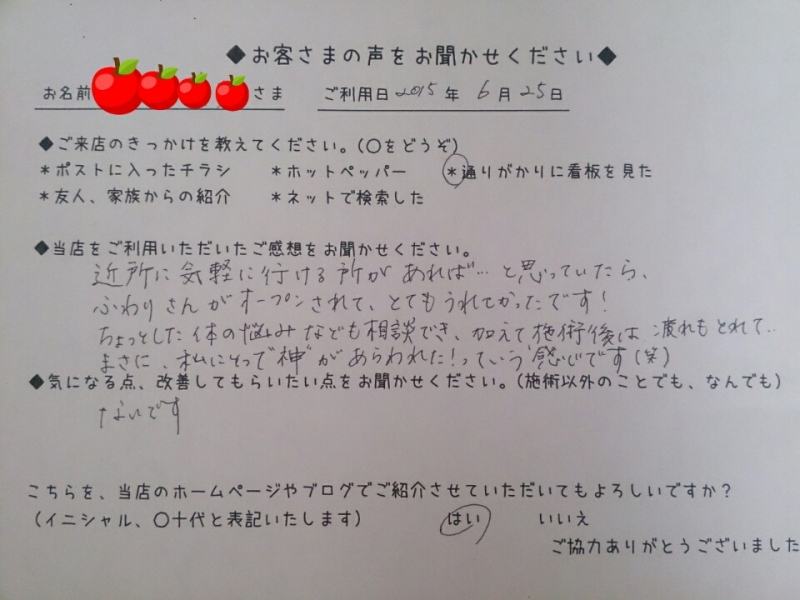 ◆お客さまの声をお聞かせください◆
お名前 さま ご利用日2015年 6月25日
◆ご来店のきっかけを教えてください。(〇をどうぞ)
*ポストに入ったチラシ *ホットペッパー *通りがかりに看板を見た
*友人、家族からの紹介 *ネットで検索した
◆当店をご利用いただいたご感想をお聞かせください。
近所に気軽に行ける所があれば…と思っていたら、
ふわりさんがオープンされて、とてもうれてかったです!
ちょっとした体の悩みなども相談でき、加えて施術後は疲れもとれて…
まさに、私にとって"神"があらわれた!っていう感じです(笑)
◆気になる点、改善してもらいたい点をお聞かせください。(施術以外のことでも、なんでも)
ないです
こちらを、当店のホームページやブログでご紹介させていただいてもよろしいですか?
(イニシャル、〇十代と表記いたします) はい いいえ
ご協力ありがとうございました